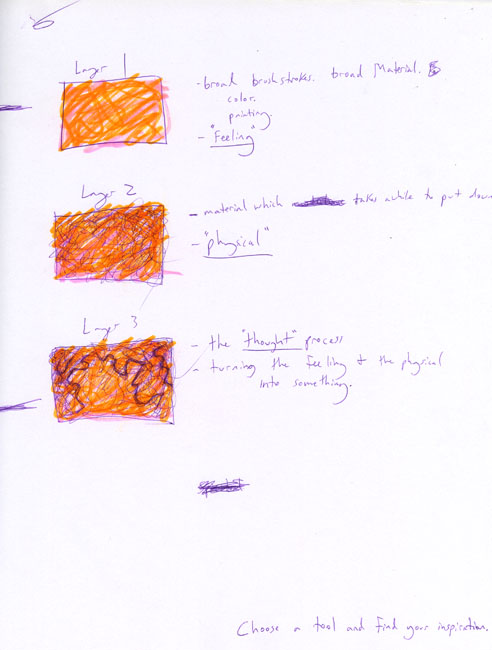 Layer 1
- broad brushstrokes. broad Material.
color.
painting.
- "Feeling"
Layer 2
- material which takes awhile to put down
- "physical"
Layer 3
- the "thought" process
- turning the feeling & the physical
into something.
Choose a tool and find your inspiration.